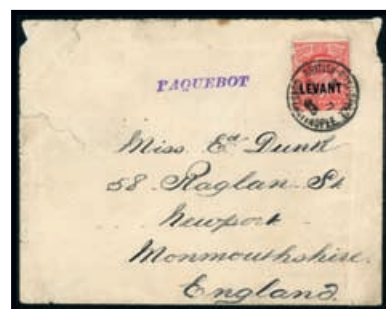 PAQUEBOT
LEVANT
BRITISH
Miss Ed Dunk
58 Raglan St
Newport
Monmouthshire.
England.